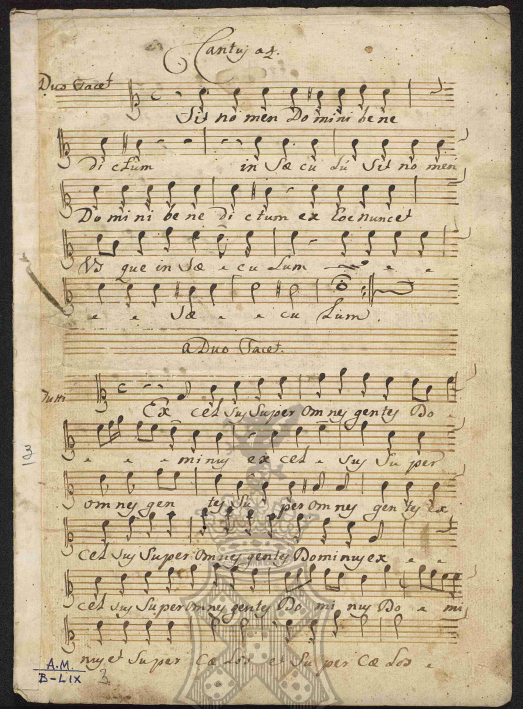 Cantus a 4.
Duo Tacet
Sit no men Do mini be ne
di ctum in Sæ cu lu Sit no men
Do mi ni be ne di ctum ex Eoc nunc et
Vs que in Sæ e cu lum e e
e e Sæ e e cu lum.
a Duo Tacet.
Tutti
Ex cel sus Super om nes gentes Do
e e e minus ex cel e sus Su per
om nes gen tes Su per om nes gen tes Ex
cel sus Super Om nes gentes Dominus ex e e
cel sus Su per om nes gentes Do mi nus Do e mi
nus et Su per Cæ los et Su per Cæ los e
13
A.M.
B-LIX
3.